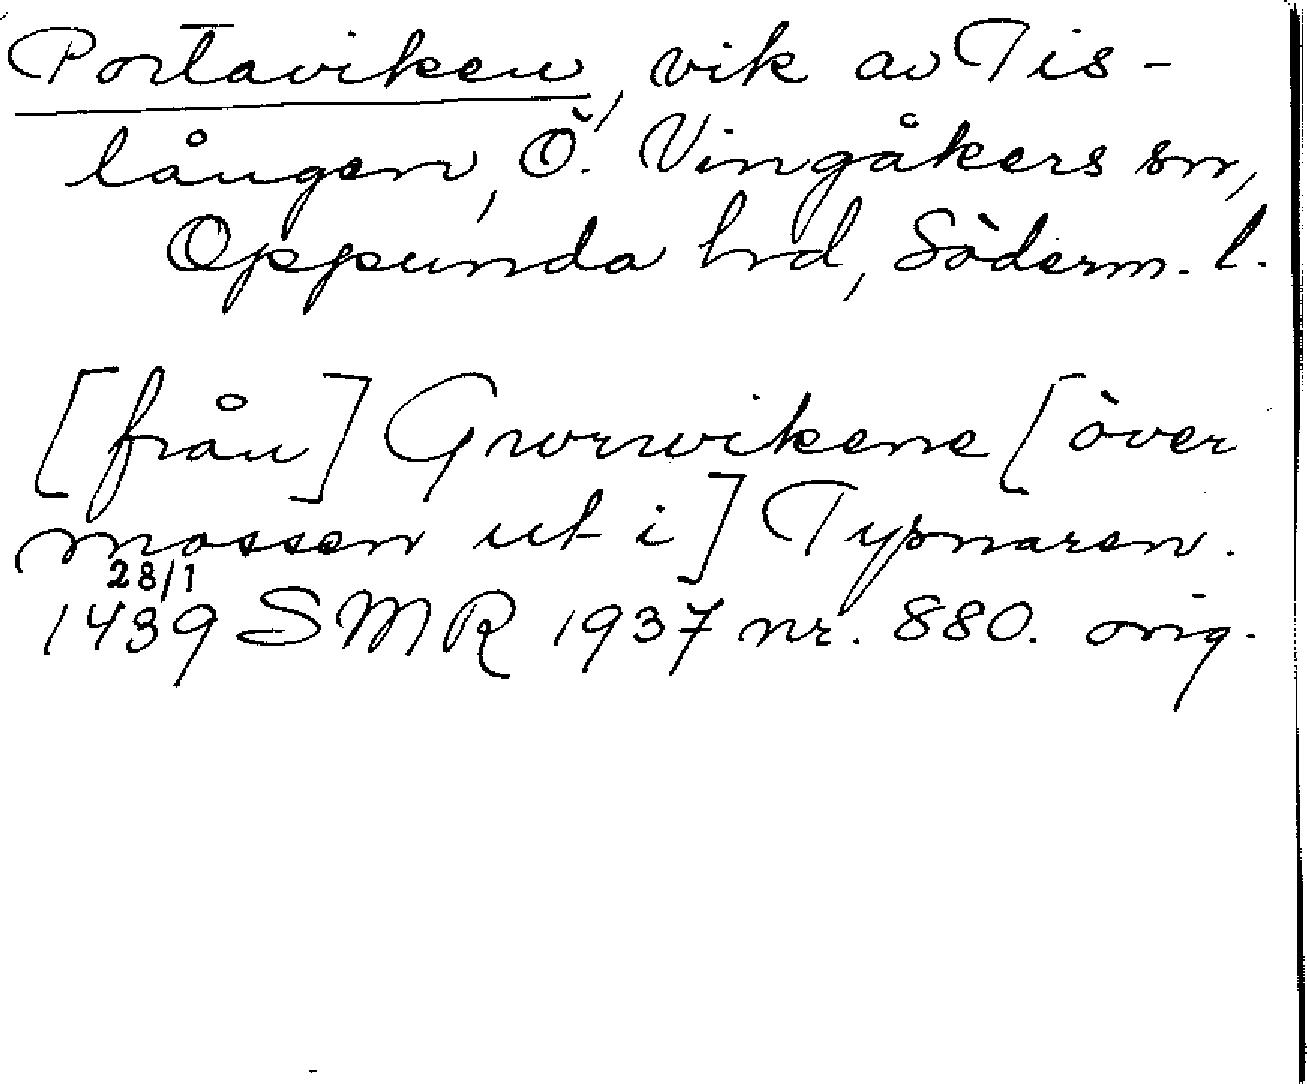 Portaviken, vik av Tis-
lången, Ö. Vingåkers sn,
Oppunda hd, Söderm. l.
[från] Grwrwikene [över
mossen ut i] Tysnaren.
28/1
1439 SMR 1937 nr. 880. orig.